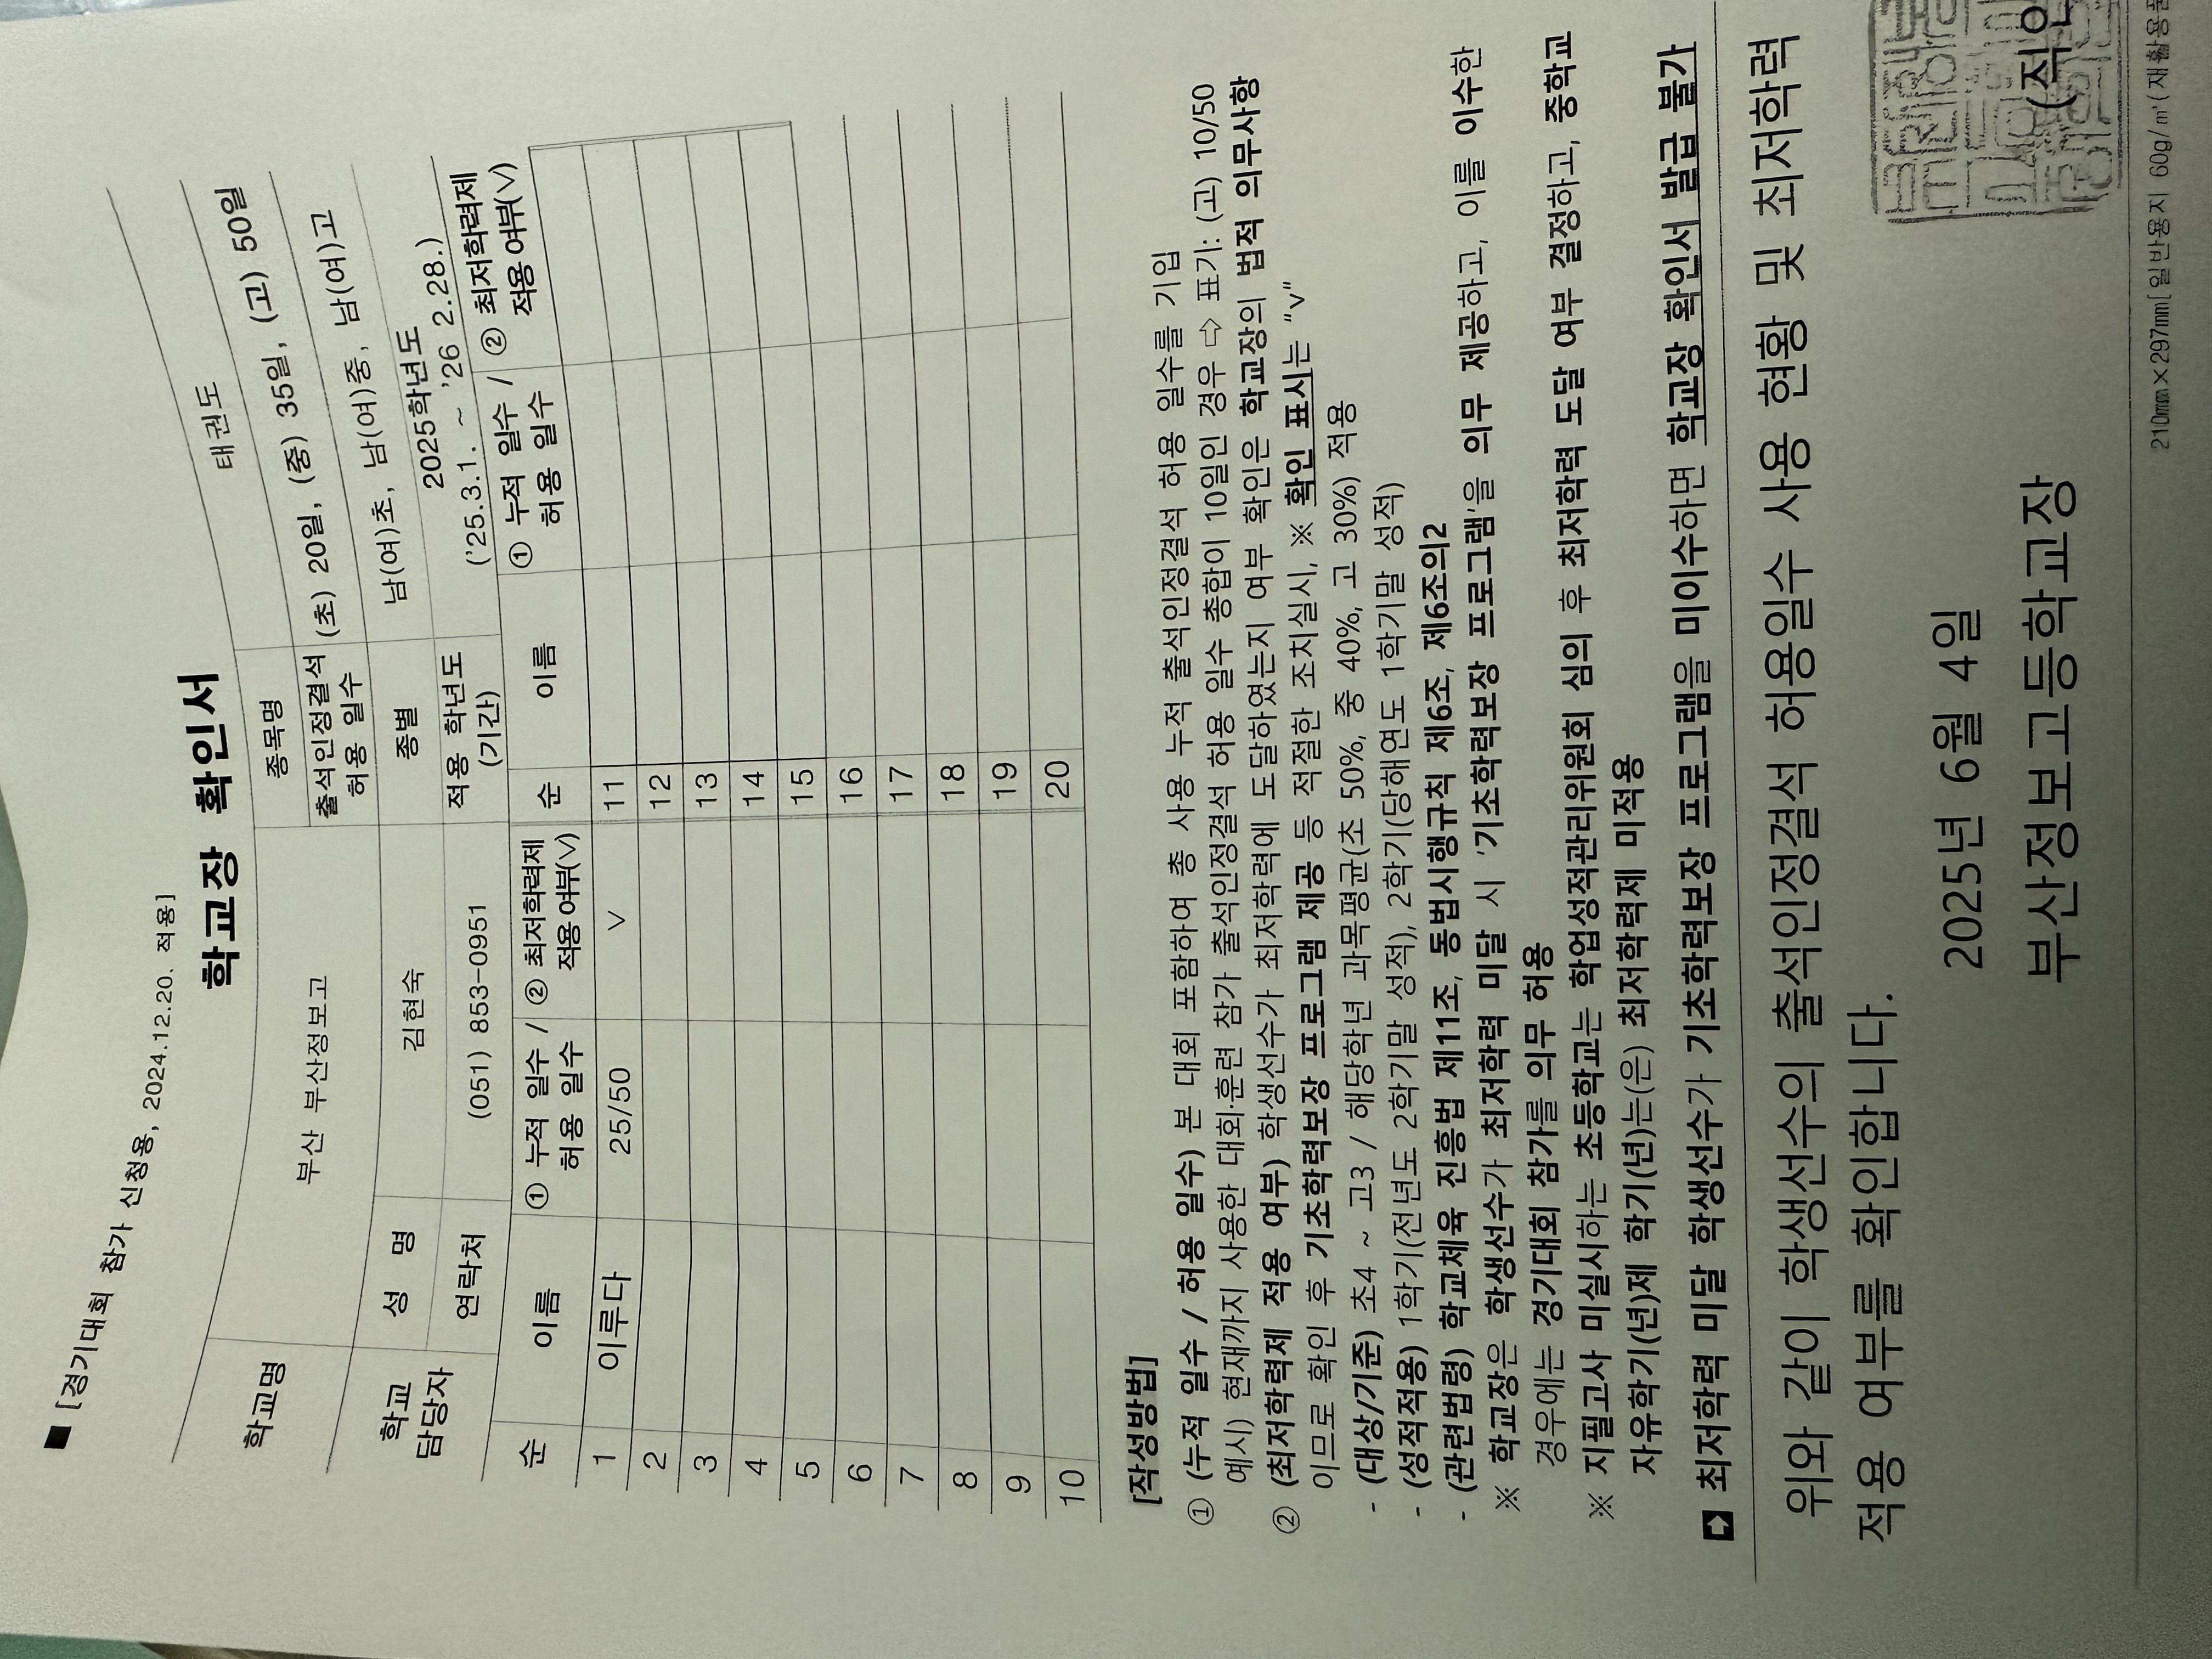 ■ [경기대회 참가 신청용, 2024.12.20. 적용]
학교장 확인서
학교명 부산 부산정보고 종목명 태권도
출석인정결석 허용 일수 (초) 20일, (중) 35일, (고) 50일
학교 담당자 성 명 김현숙 종별 남(여)초, 남(여)중, 남(여)고
연락처 (051) 853-0951 적용 학년도 (기간) 2025학년도 ('25.3.1. ~ '26 2.28.)
순 이름 ① 누적 일수 / 허용 일수 ② 최저학력제 적용여부(∨) 순 이름 ① 누적 일수 / 허용 일수 ② 최저학력제 적용여부(∨)
1 이루다 25/50 ∨ 11
2 12
3 13
4 14
5 15
6 16
7 17
8 18
9 19
10 20
[작성방법]
① (누적 일수 / 허용 일수) 본 대회 포함하여 총 사용 누적 출석인정결석 허용 일수를 기입
예시) 현재까지 사용한 대회·훈련 참가 출석인정결석 허용 일수 총합이 10일인 경우 ⇨ 표기: (고) 10/50
② (최저학력제 적용 여부) 학생선수가 최저학력에 도달하였는지 여부 확인은 학교장의 법적 의무사항
이므로 확인 후 기초학력보장 프로그램 제공 등 적절한 조치실시, ※ 확인 표시는 "∨"
- (대상/기준) 초4 ~ 고3 / 해당학년 과목평균(초 50%, 중 40%, 고 30%) 적용
- (성적적용) 1학기(전년도 2학기말 성적), 2학기(당해연도 1학기말 성적)
- (관련법령) 학교체육 진흥법 제11조, 동법시행규칙 제6조, 제6조의2
※ 학교장은 학생선수가 최저학력 미달 시 '기초학력보장 프로그램'을 의무 제공하고, 이를 이수한
경우에는 경기대회 참가를 의무 허용
※ 지필고사 미실시하는 초등학교는 학업성적관리위원회 심의 후 최저학력 도달 여부 결정하고, 중학교
자유학기(년)제 학기(년)는(은) 최저학력제 미적용
최저학력 미달 학생선수가 기초학력보장 프로그램을 미이수하면 학교장 확인서 발급 불가
위와 같이 학생선수의 출석인정결석 허용일수 사용 현황 및 최저학력
적용 여부를 확인합니다.
2025년 6월 4일
부산정보고등학교장
210㎜×297㎜[일반용지 60g/㎡(재활용품